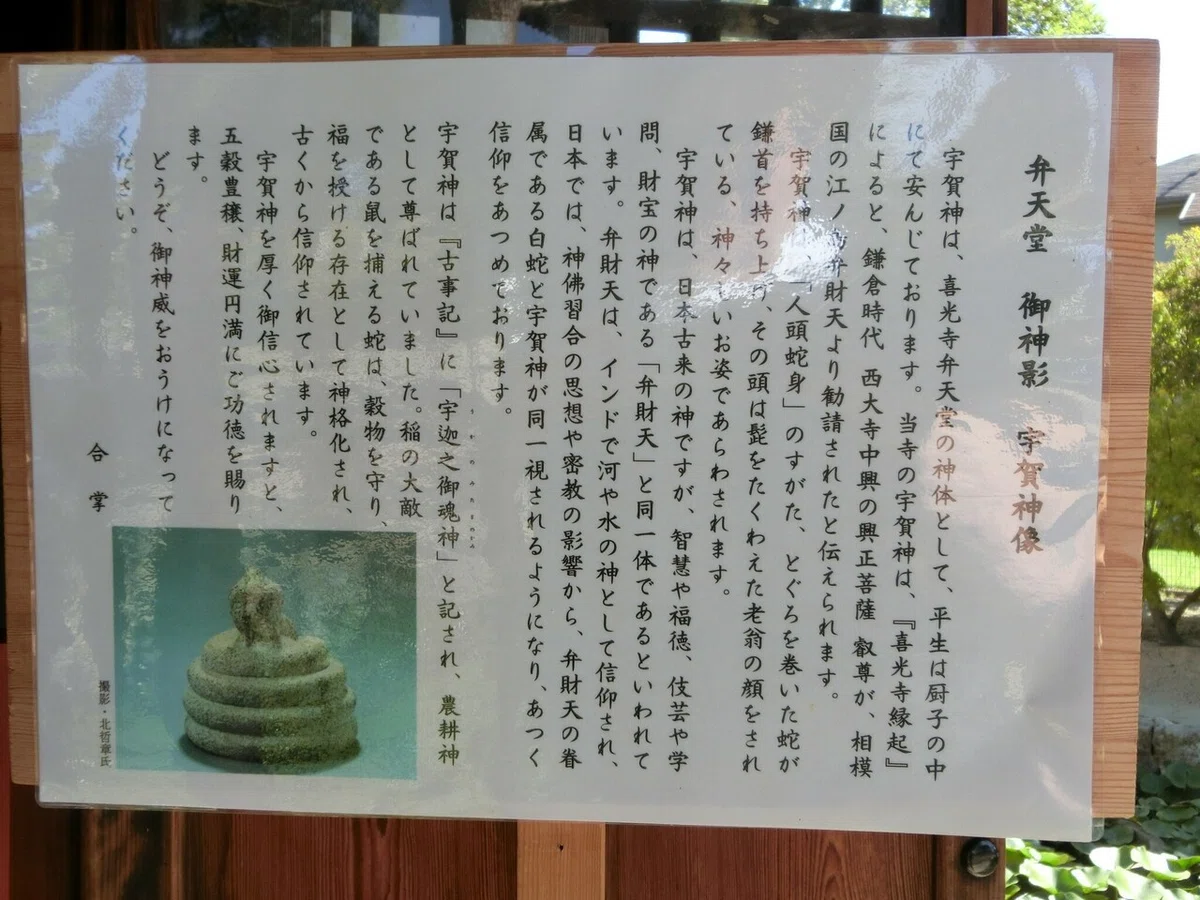 弁天堂　御神影　宇賀神像
宇賀神は、喜光寺弁天堂の神体として、平生は厨子の中
にて安んじております。　当寺の宇賀神は、『喜光寺縁起』
によると、鎌倉時代　西大寺中興の興正菩薩　叡尊が、相模
国の江ノ島弁財天より勧請されたと伝えられます。
宇賀神は、「人頭蛇身」のすがた、とぐろを巻いた蛇が
鎌首を持ち上げ、その頭は髭をたくわえた老翁の顔をされ
ている、神々しいお姿であらわされます。
宇賀神は、日本古来の神ですが、智慧や福徳、伎芸や学
問、財宝の神である「弁財天」と同一体であるといわれて
います。弁財天は、インドで河や水の神として信仰され、
日本では、神佛習合の思想や密教の影響から、弁財天の眷
属である白蛇と宇賀神が同一視されるようになり、あつく
信仰をあつめております。
宇賀神は『古事記』に「宇迦之御魂神」と記され、農耕神
うかのみたまのかみ
として尊ばれていました。稲の大敵
である鼠を捕える蛇は、穀物を守り、
福を授ける存在として神格化され、
古くから信仰されています。
宇賀神を厚く御信心されますと、
五穀豊穣、財運円満にご功徳を賜り
ます。
どうぞ、御神威をおうけになって
ください。
合掌
撮影・北哲章氏